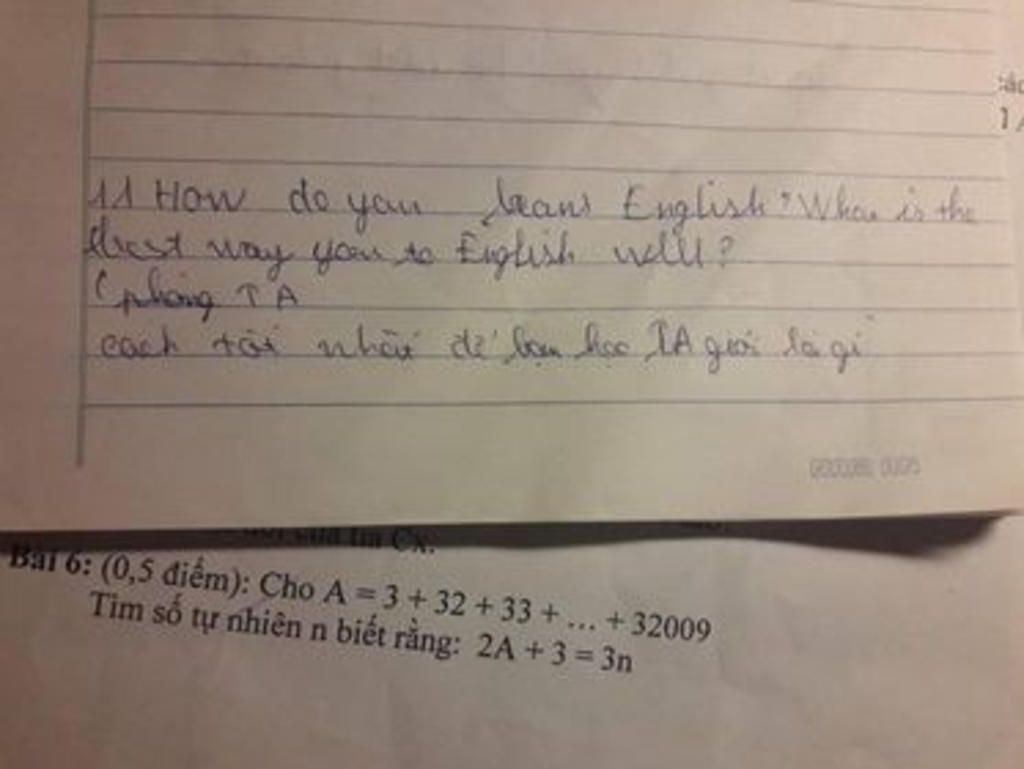 11 How do you learn English? What is the
best way you to English well?
(phòng TA
cách tốt nhất để bạn học TA giỏi là gì
của tia Cx.
Bài 6: (0,5 điểm): Cho A = 3 + 32 + 33 + ... + 32009
Tìm số tự nhiên n biết rằng: 2A + 3 = 3n